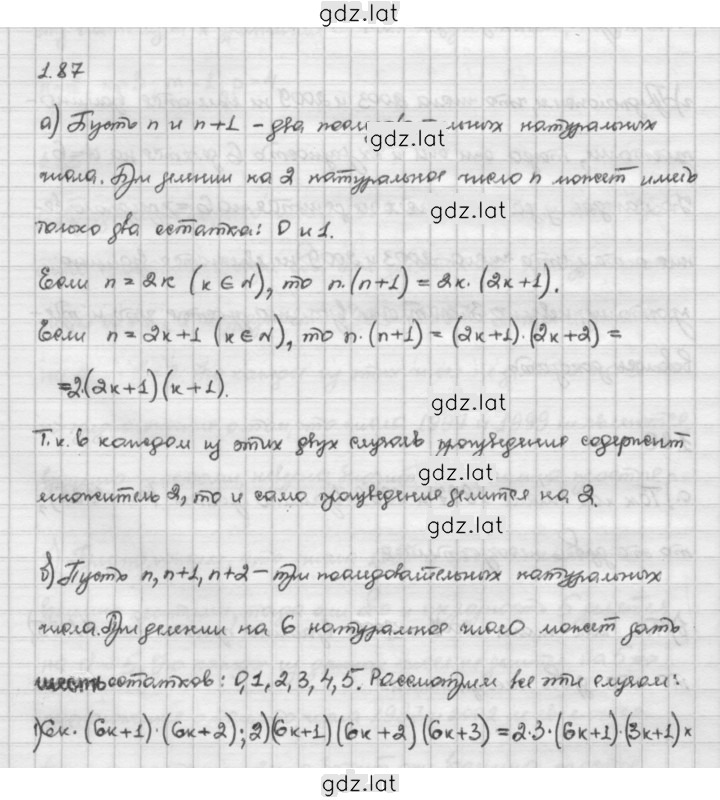 gdz.lat
1.87
а) Пусть n и n+1 – два последовательных натуральных
gdz.lat
числа. При делении на 2 натуральное число n может иметь
gdz.lat
только два остатка: 0 и 1.
Если n = 2к (к ∈ N), то n·(n+1) = 2к·(2к+1).
Если n = 2к+1 (к ∈ N), то n·(n+1) = (2к+1)·(2к+2) =
= 2·(2к+1)(к+1).
gdz.lat
Т.к. в каждом из этих двух случаев произведение содержит
gdz.lat
множитель 2, то и само произведение делится на 2.
gdz.lat
б) Пусть n, n+1, n+2 – три последовательных натуральных
числа. При делении на 6 натуральное число может дать
gdz.lat
шесть остатков: 0, 1, 2, 3, 4, 5. Рассмотрим все эти случаи:
1) 6к·(6к+1)·(6к+2); 2) (6к+1)(6к+2)(6к+3) = 2·3·(6к+1)·(3к+1)×
gdz.lat